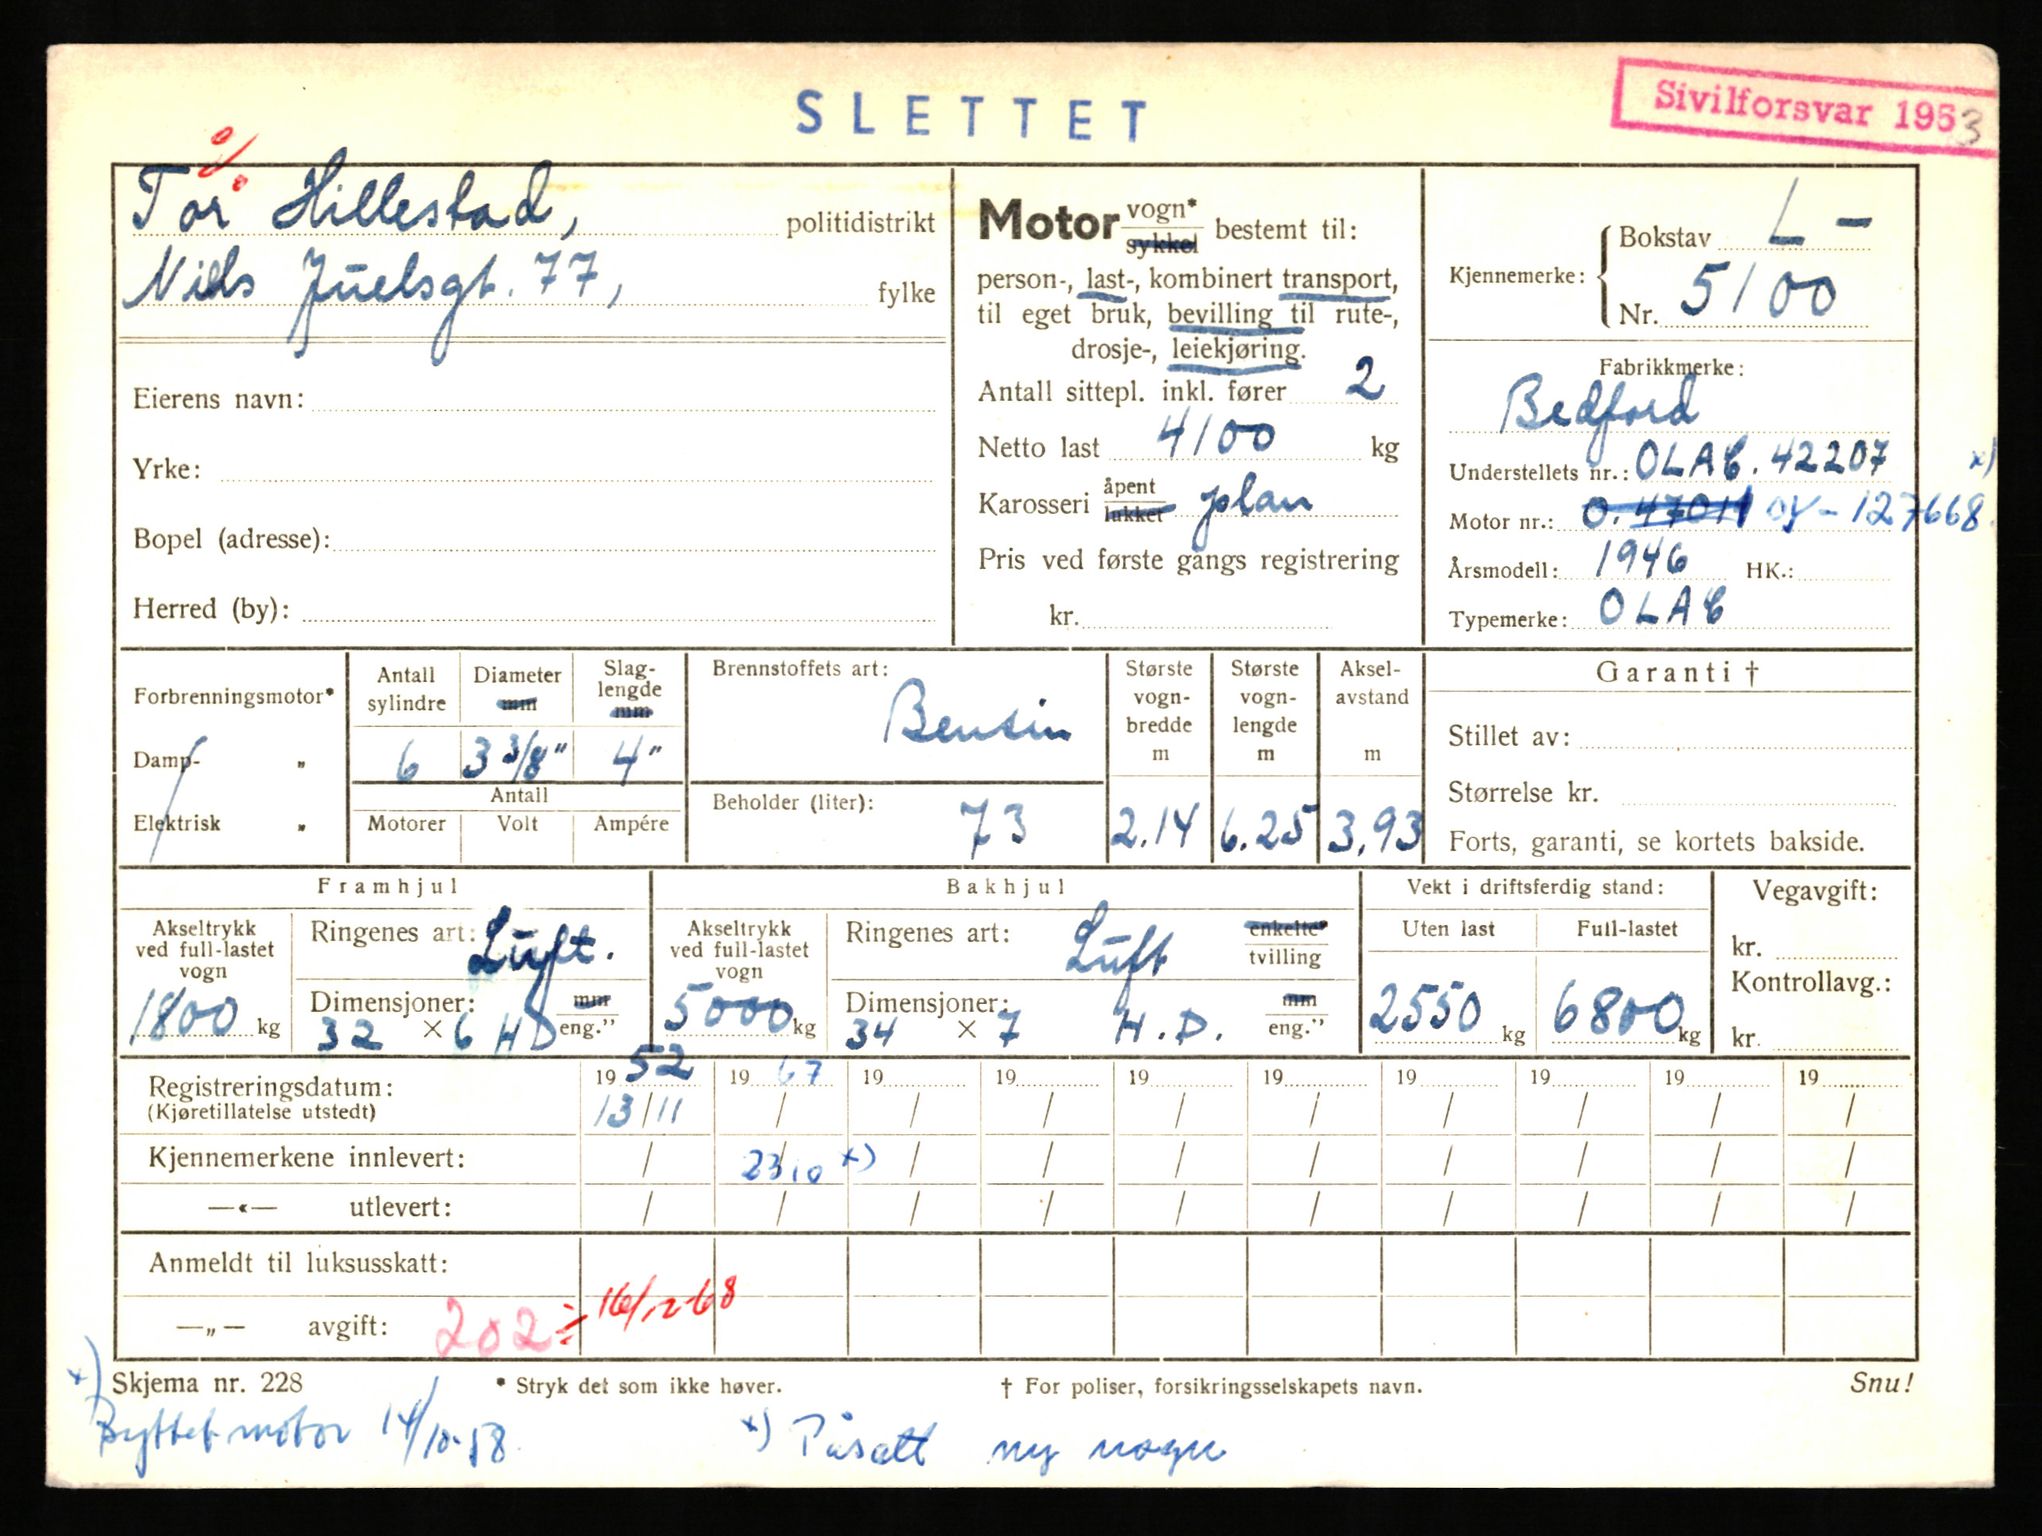 SLETTET
Sivilforsvar 1953
Tor Hillestad, politidistrikt
Niels Juelsgt. 77, fylke
Eierens navn:
Yrke:
Bopel (adresse):
Herred (by):
Motor vogn* sykkel bestemt til:
person-, last-, kombinert transport,
til eget bruk, bevilling til rute-,
drosje-, leiekjøring.
Antall sittepl. inkl. fører 2
Netto last 4100 kg
Karosseri åpent lukket plan
Pris ved første gangs registrering
kr.
Kjennemerke: Bokstav L -
Nr. 5100
Fabrikkmerke:
Bedford
Understellets nr.: OLAC. 42207 x)
Motor nr.: O. 47011 OY - 127668
Årsmodell: 1946 HK.:
Typemerke: OLAC
Forbrenningsmotor*
Damp- „
Elektrisk „
Antall sylindre
6
Diameter mm
3 3/8"
Slaglengde mm
4"
Antall
Motorer Volt Ampére
Brennstoffets art:
Bensin
Beholder (liter):
73
Største vogn-bredde m
2.14
Største vogn-lengde m
6.25
Aksel-avstand m
3,93
Garanti †
Stillet av:
Størrelse kr.
Forts, garanti, se kortets bakside.
Framhjul
Akseltrykk ved full-lastet vogn
1800 kg
Ringenes art: Luft.
Dimensjoner: mm
32 × 6 HD eng."
Bakhjul
Akseltrykk ved full-lastet vogn
5000 kg
Ringenes art: Luft enkelte* tvilling
Dimensjoner: mm
34 × 7 H.D. eng."
Vekt i driftsferdig stand:
Uten last Full-lastet
2550 kg 6800 kg
Vegavgift:
kr.
Kontrollavg.:
kr.
Registreringsdatum: 19 52 19 67 19 19 19 19 19 19 19 19
(Kjøretillatelse utstedt) 13/11 / / / / / / / / /
Kjennemerkene innlevert: / 23/10 x) / / / / / / / /
—«— utlevert: / / / / / / / / / /
Anmeldt til luksusskatt:
—„— avgift: 202 16/12-68
Skjema nr. 228 * Stryk det som ikke høver. † For poliser, forsikringsselskapets navn. Snu!
x) Byttet motor 14/10-58 x) Påsatt ny vogn